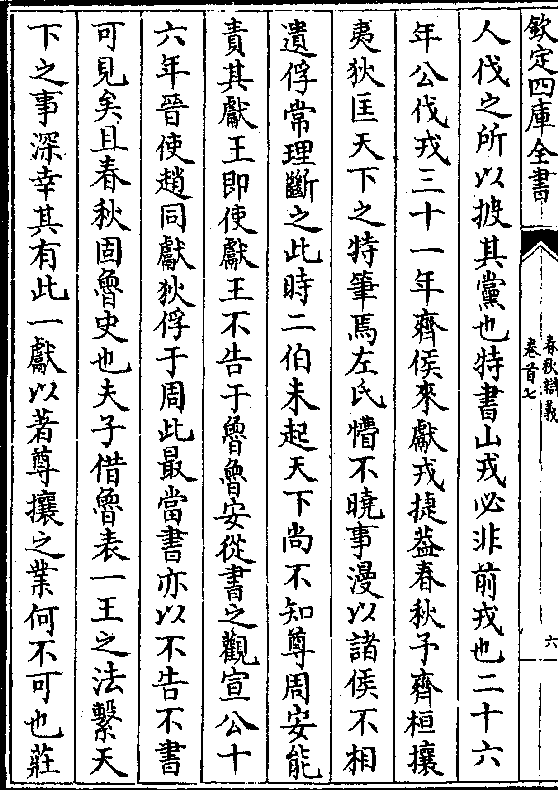 欽定四庫全書
春秋辯義
卷首七
六
人伐之所以披其黨也特書山戎必非前戎也二十六
年公伐戎三十一年齊侯來獻戎捷蓋春秋予齊桓攘
夷狄匡天下之特筆焉左氏懵不曉事漫以諸侯不相
遺俘常理斷之此時二伯未起天下尚不知尊周安能
責其獻王即使獻王不告于魯魯安從書之觀宣公十
六年晉使趙同獻狄俘于周此最當書亦以不告不書
可見矣且春秋固魯史也夫子借魯表一王之法繫天
下之事深幸其有此一獻以著尊攘之業何不可也莊